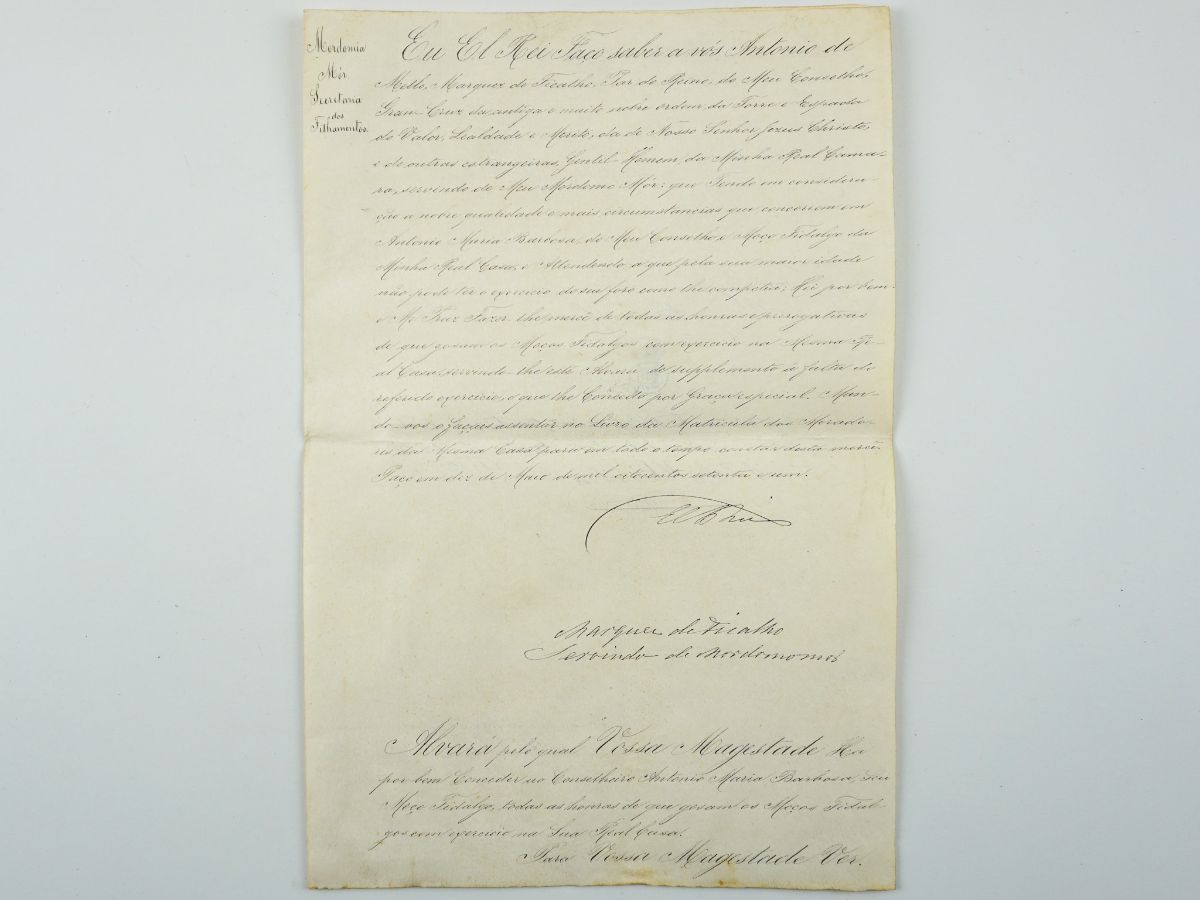 Mordomia
Mór
Secretaria
dos
Filhamentos.
Eu El Rei Faço saber a vós Antonio de
Mello, Marquez de Ficalho, Par do Reino, do Meu Conselho,
Gram-Cruz da antiga e muito nobre ordem da Torre e Espada
do Valor, Lealdade e Merito, da de Nosso Senhor Jezus Christo,
e de outras estrangeiras, Gentil-Homem da Minha Real Cama-
ra, servindo de Meu Mordomo Mór: que Tendo em considera-
ção a nobre qualidade e mais circumstancias que concorrem em
Antonio Maria Barbosa, do Meu Conselho, e Moço Fidalgo da
Minha Real Casa, e Attendendo a que pela sua maior idade
não pode ter o exercicio do seu foro como lhe competia; Hei por bem
e Me Praz Fazer-lhe mercê de todas as honras e prerogativas
de que gosam os Moços Fidalgos com exercicio na Mesma Re-
al Casa, servindo-lhe este Alvará de supplemento á falta do
referido exercicio, o que lhe Concedo por Graça especial. Man-
do-vos o façais assentar no Livro da Matricula dos Morado-
res da Mesma Casa para em todo o tempo constar desta mercê.
Paço em dez de Maio de mil oitocentos setenta e um.
El Rei
Marquez de Ficalho
Servindo de Mordomo mór
Alvará pelo qual Vossa Magestade Ha
por bem Conceder ao Conselheiro Antonio Maria Barbosa, Seu
Moço Fidalgo, todas as honras de que gosam os Moços Fidal-
gos com exercicio na Sua Real Casa.
Para Vossa Magestade Ver.